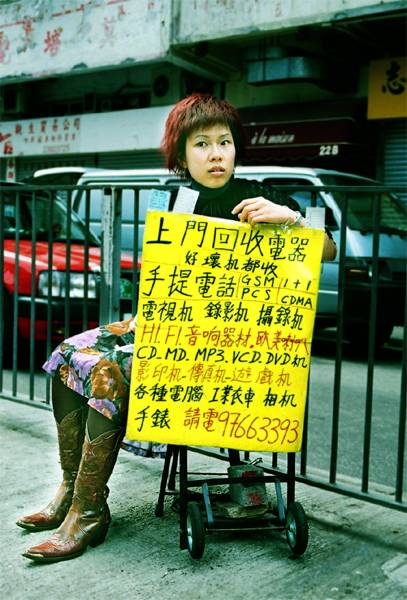 新生貿易公司
à la maison
22B
志
上門回收電器
好壞机都收
手提電話 GSM 1+1
PCS CDMA
電視机 錄影机 攝錄机
HI.FI.音响器材.欧美
CD.MD.MP3.VCD.DVD机
影印机.傳真机.遊戲机
各種電腦 工業衣車 相机
手錶 請電97663393